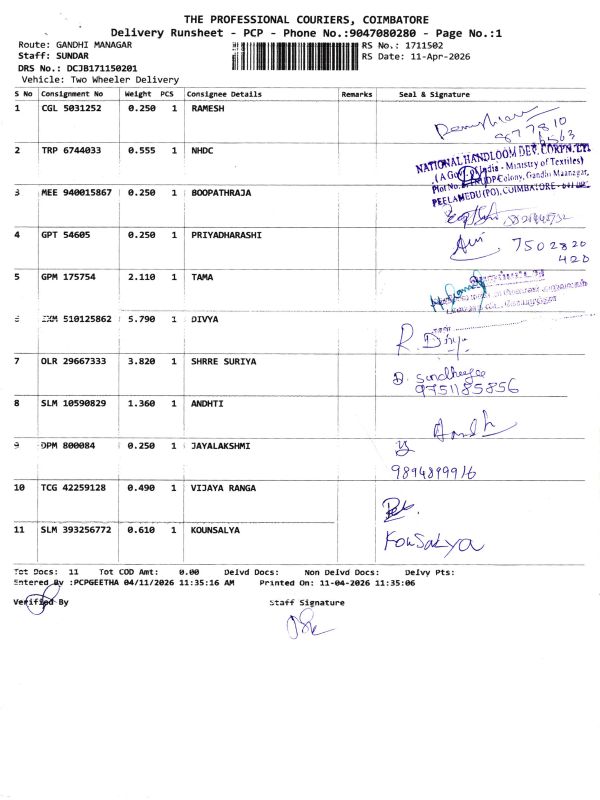 THE PROFESSIONAL COURIERS, COIMBATORE
Delivery Runsheet - PCP - Phone No.:9047080280 - Page No.:1
Route: GANDHI MANAGAR
RS No.: 1711502
Staff: SUNDAR
RS Date: 11-Apr-2026
DRS No.: DCJB171150201
Vehicle: Two Wheeler Delivery
S No Consignment No Weight PCS Consignee Details Remarks Seal & Signature
1 CGL 5031252 0.250 1 RAMESH
2 TRP 6744033 0.555 1 NHDC
NATIONAL HANDLOOM DEV. CORPN.
Ministry of Textiles)
Colony, Gandhi Maanagar,
PEELAMEDU (PO), COIMBATORE
3 MEE 940015867 0.250 1 BOOPATHRAJA
4 GPT 54605 0.250 1 PRIYADHARASHI
7502820
420
5 GPM 175754 2.110 1 TAMA
510125862 5.790 1 DIVYA
R. Divy
7 OLR 29667333 3.820 1 SHRRE SURIYA
9751185856
8 SLM 10590829 1.360 1 ANDHTI
9 DPM 800084 0.250 1 JAYALAKSHMI
9894899916
10 TCG 42259128 0.490 1 VIJAYA RANGA
11 SLM 393256772 0.610 1 KOUNSALYA
KouSalya
Tot Docs: 11 Tot COD Amt: 0.00 Delvd Docs: Non Delvd Docs: Delvy Pts:
Entered By :PCPGEETHA 04/11/2026 11:35:16 AM Printed On: 11-04-2026 11:35:06
Verified By Staff Signature